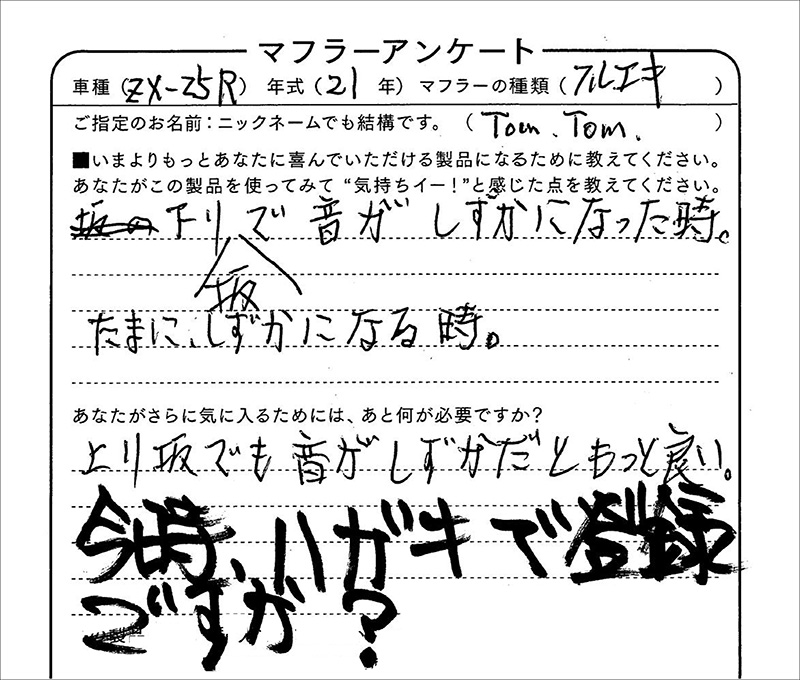 マフラーアンケート
車種（ZX-25R） 年式（21 年）マフラーの種類（フルエキ ）
ご指定のお名前：ニックネームでも結構です。（Tom.Tom. ）
■いまよりもっとあなたに喜んでいただける製品になるために教えてください。
あなたがこの製品を使ってみて“気持ちイー！”と感じた点を教えてください。
下り坂で音がしずかになった時。
たまに、しずかになる時。
あなたがさらに気に入るためには、あと何が必要ですか？
上り坂でも音がしずかだともっと良い。
今時、ハガキで登録
ですか？